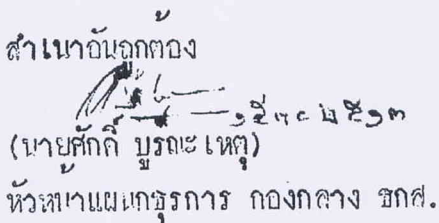 สำเนาอันถูกต้อง
(นายศักดิ์ บูรณะเหตุ)
หัวหน้าแผนกธุรการ กองกลาง ธกส.